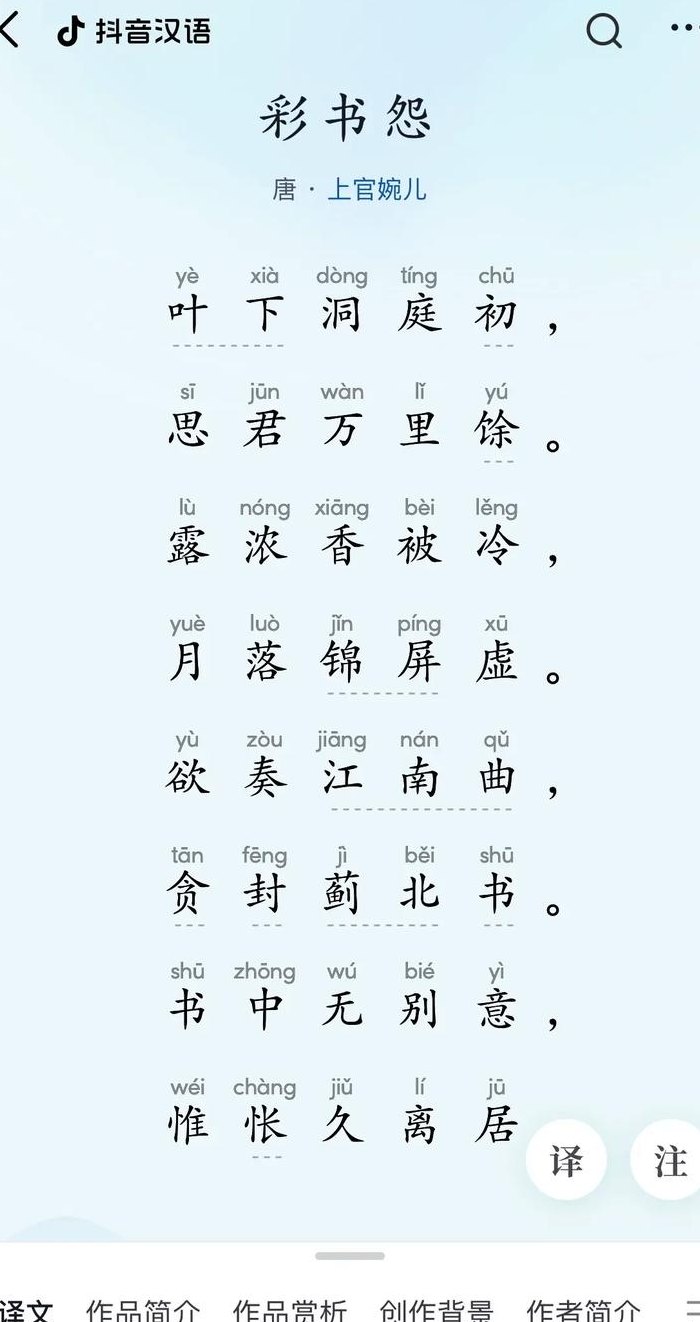 抖音汉语
彩书怨
唐 · 上官婉儿
yè xià dòng tíng chū
叶下洞庭初，
sī jūn wàn lǐ yú
思君万里馀。
lù nóng xiāng bèi lěng
露浓香被冷，
yuè luò jǐn píng xū
月落锦屏虚。
yù zòu jiāng nán qǔ
欲奏江南曲，
tān fēng jì běi shū
贪封蓟北书。
shū zhōng wú bié yì
书中无别意，
wéi chàng jiǔ lí jū
惟怅久离居
译 注
译文 作品简介 作品赏析 创作背景 作者简介